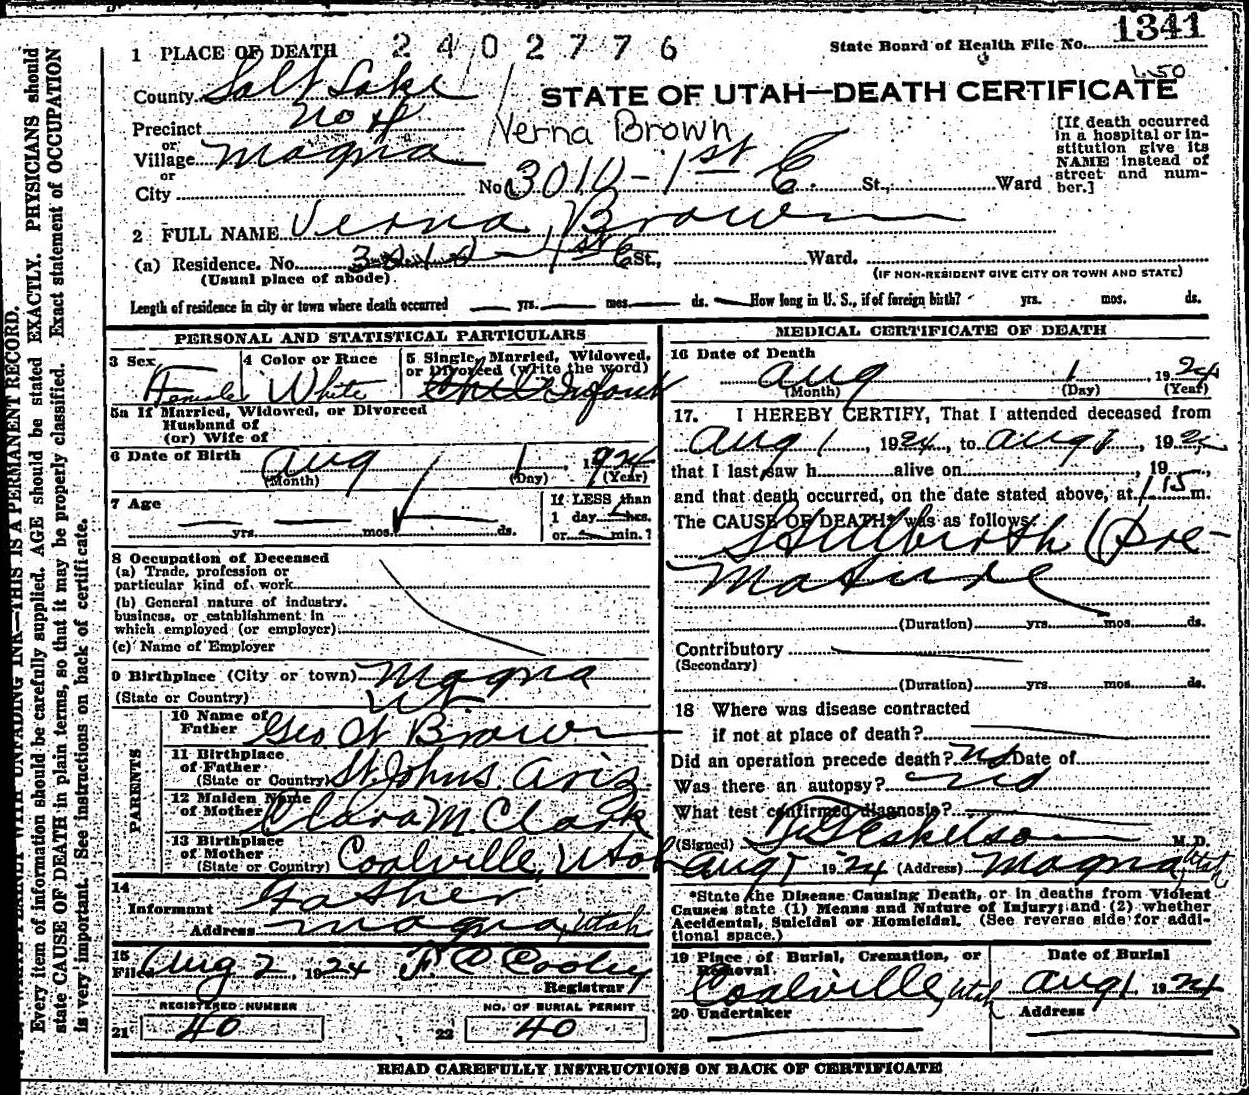 1341
State Board of Health File No.
2402776
1 PLACE OF DEATH
L50
County Salt Lake
STATE OF UTAH—DEATH CERTIFICATE
Precinct No 4
Verna Brown
or
Village Magna
or
City
No 3010 - 1st E. St., Ward
[If death occurred
in a hospital or in-
stitution give its
NAME instead of
street and num-
ber.]
2 FULL NAME Verna Brown
(a) Residence. No. 3010 - 1st E St., Ward.
(Usual place of abode)
(IF NON-RESIDENT GIVE CITY OR TOWN AND STATE)
Length of residence in city or town where death occurred — yrs. — mos. — ds. — How long in U. S., if of foreign birth? yrs. mos. ds.
PERSONAL AND STATISTICAL PARTICULARS
3 Sex Female
4 Color or Race White
5 Single, Married, Widowed,
or Divorced (write the word)
Infant
5a If Married, Widowed, or Divorced
Husband of
(or) Wife of
6 Date of Birth Aug 1, 1924
(Month) (Day) (Year)
7 Age
yrs. mos. ds.
If LESS than
1 day hrs.
or min.?
8 Occupation of Deceased
(a) Trade, profession or
particular kind of work
(b) General nature of industry,
business, or establishment in
which employed (or employer)
(c) Name of Employer
9 Birthplace (City or town) Magna
(State or Country) Ut
PARENTS
10 Name of
Father Geo W Brown
11 Birthplace
of Father
(State or Country) St. Johns Ariz.
12 Maiden Name
of Mother Clara M. Clark
13 Birthplace
of Mother
(State or Country) Coalville, Utah
14
Informant Father
Address Magna, Utah
15
Filed Aug 2, 1924 F C Cooley
Registrar
REGISTERED NUMBER
21 40
NO. OF BURIAL PERMIT
22 40
MEDICAL CERTIFICATE OF DEATH
16 Date of Death
Aug 1, 1924
(Month) (Day) (Year)
17. I HEREBY CERTIFY, That I attended deceased from
Aug 1, 1924, to Aug 1, 192
that I last saw h alive on , 19 ,
and that death occurred, on the date stated above, at 1 15 m.
The CAUSE OF DEATH* was as follows:
Stillbirth (Pre-
mature
(Duration) yrs. mos. ds.
Contributory
(Secondary)
(Duration) yrs. mos. ds.
18 Where was disease contracted
if not at place of death?
Did an operation precede death? No Date of
Was there an autopsy? No
What test confirmed diagnosis?
(Signed) Eskelson M.D.
Aug 1 1924 (Address) Magna, Utah
*State the Disease Causing Death, or in deaths from Violent
Causes state (1) Means and Nature of Injury; and (2) whether
Accidental, Suicidal or Homicidal. (See reverse side for addi-
tional space.)
19 Place of Burial, Cremation, or
Removal
Coalville, Utah
Date of Burial
Aug 1 1924
20 Undertaker
Address
READ CAREFULLY INSTRUCTIONS ON BACK OF CERTIFICATE
WRITE PLAINLY WITH UNFADING INK—THIS IS A PERMANENT RECORD.
Every item of information should be carefully supplied. AGE should be stated EXACTLY. PHYSICIANS should
state CAUSE OF DEATH in plain terms, so that it may be properly classified. Exact statement of OCCUPATION
is very important. See instructions on back of certificate.